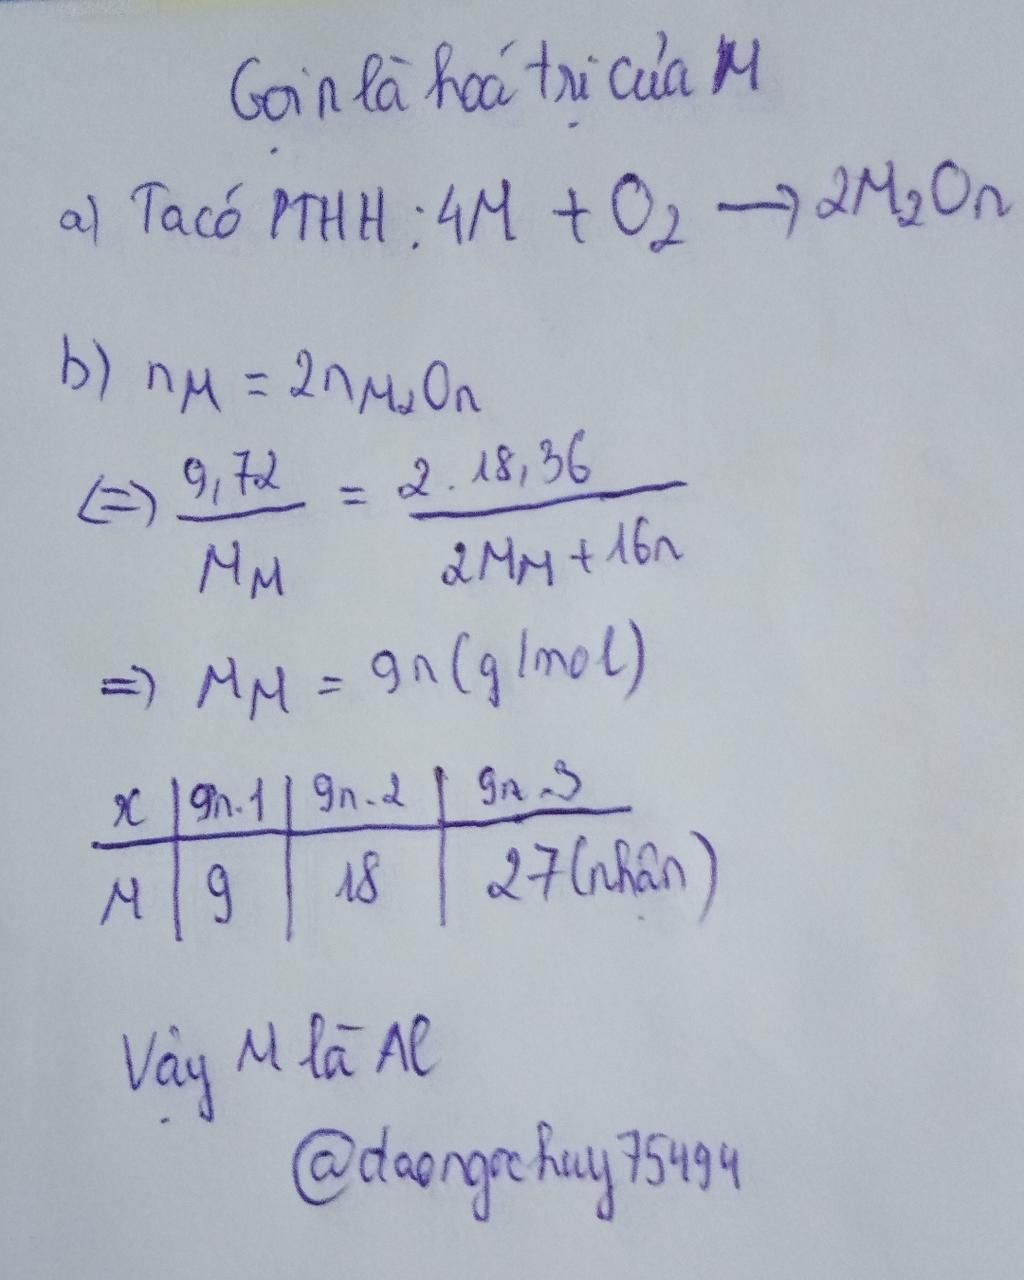 Gọi n là hoá trị của M
a) Ta có PTHH: 4M + O2 → 2M2On
b) nM = 2nM2On
(=) 9,72/MM = 2.18,36/2MM + 16n
=) MM = 9n (g/mol)
x | 9n.1 | 9n.2 | 9n.3
M | 9 | 18 | 27 (nhận)
Vậy M là Al
@daongochuy75494